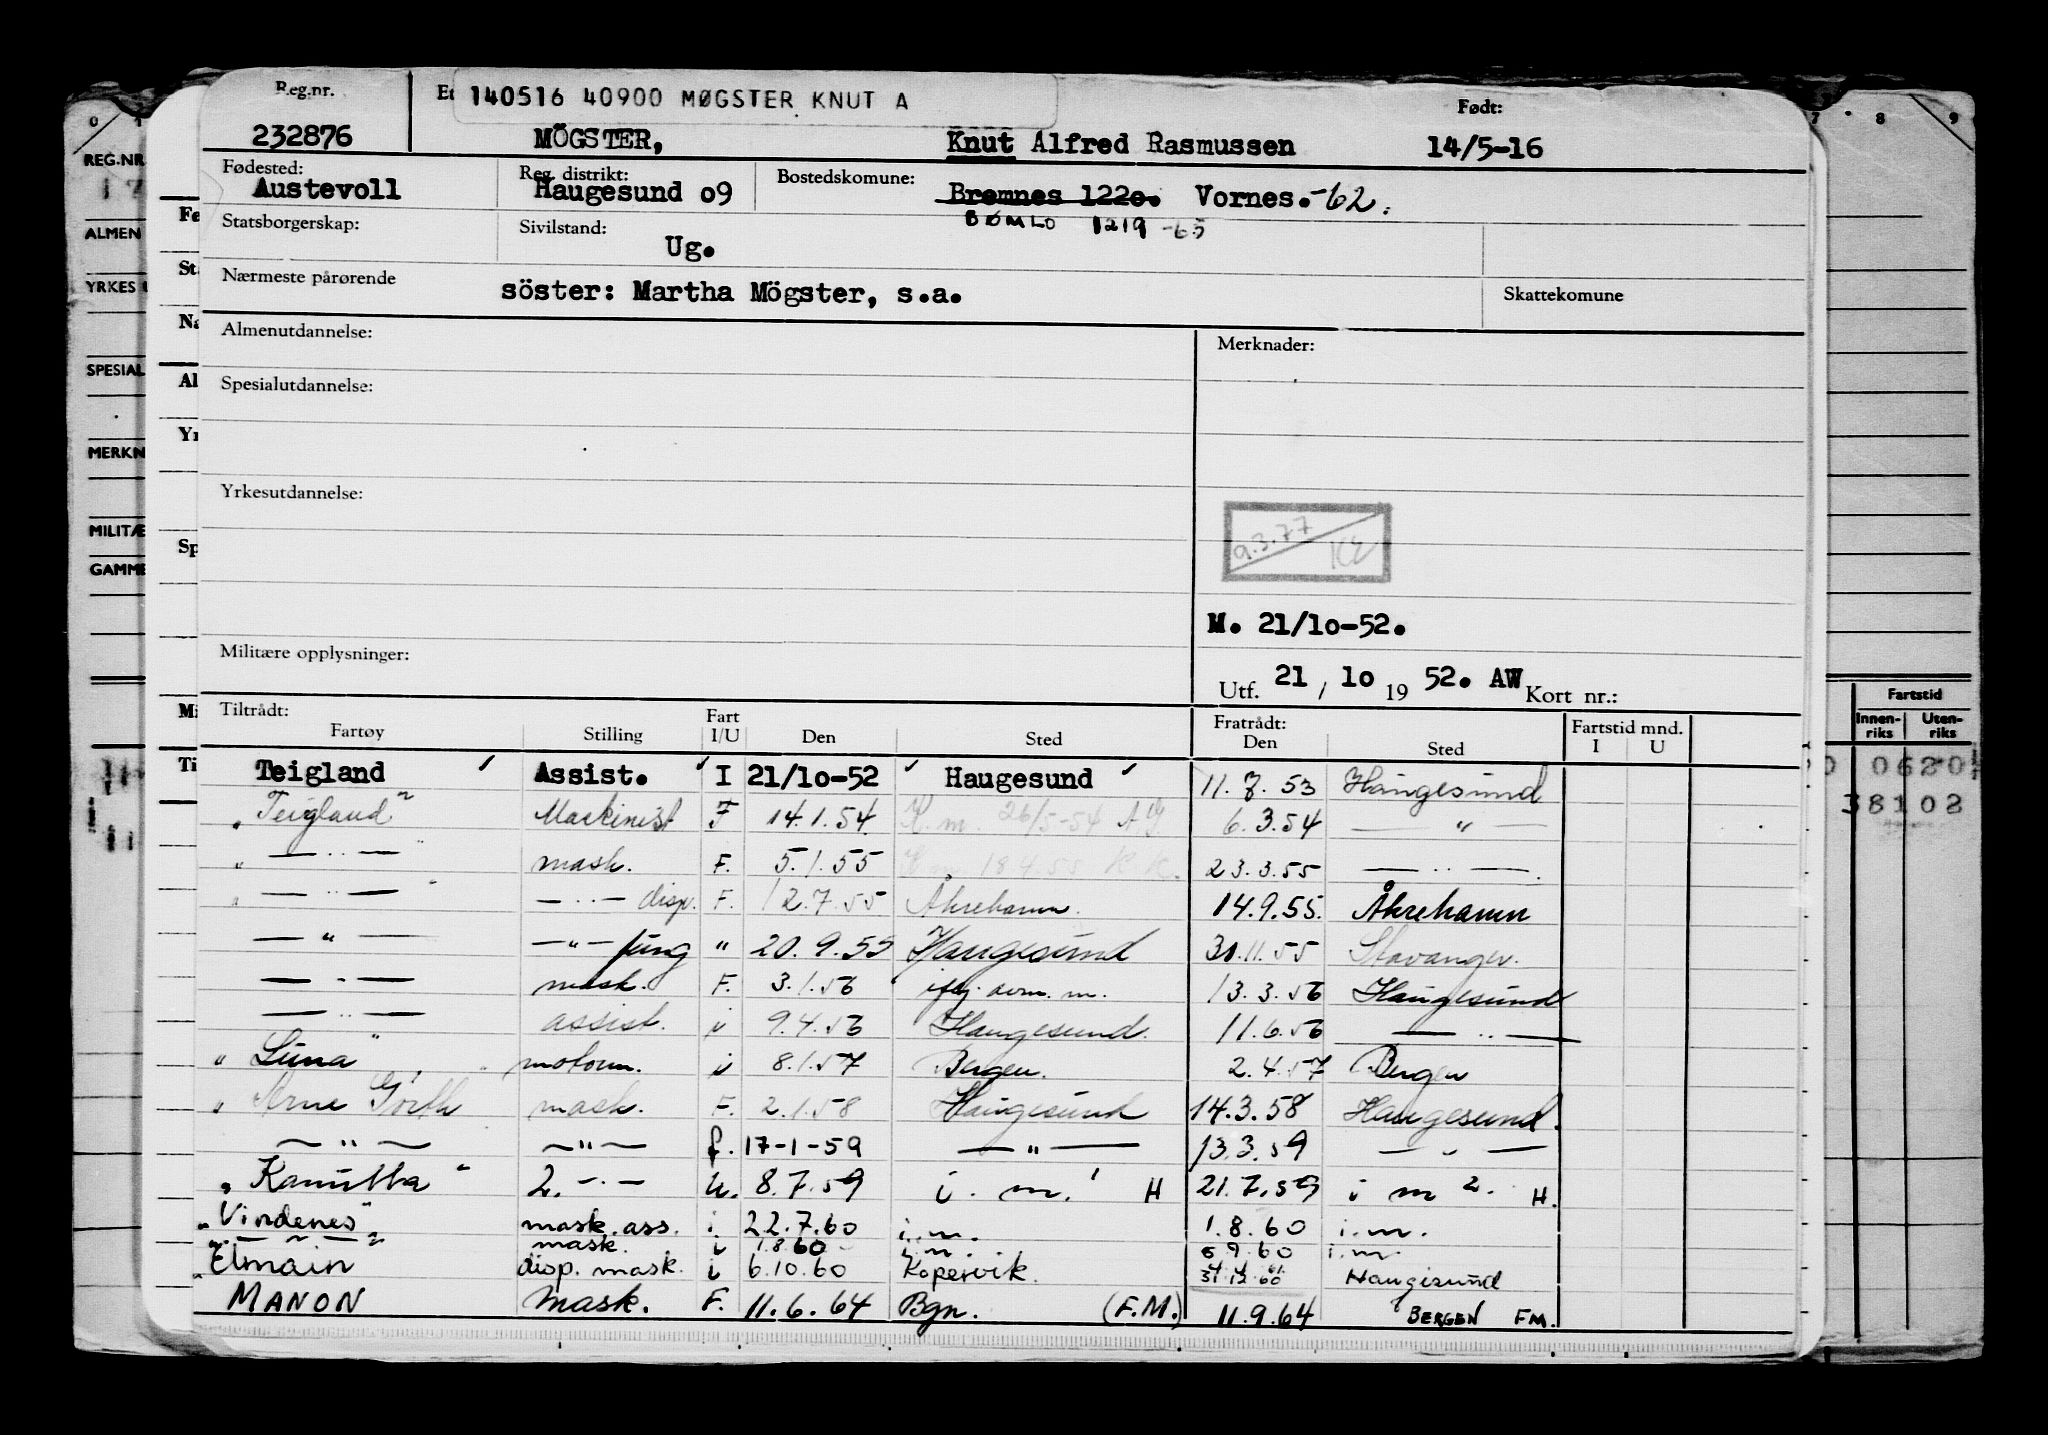 Reg.nr. Et 140516 40900 MØGSTER KNUT A Født:
232876 MÖGSTER, Knut Alfred Rasmussen 14/5-16
Fødested: Reg. distrikt: Bostedskomune:
Austevoll Haugesund o9 Bremnes 122o. Vornes.-62.
BØMLO 1219 -65
Statsborgerskap: Sivilstand:
Ug.
Nærmeste pårørende söster: Martha Mögster, s.a. Skattekomune
Almenutdannelse: Merknader:
Spesialutdannelse:
Yrkesutdannelse:
9.3.77 KE
M. 21/1o-52.
Militære opplysninger:
Utf. 21 / 1o 19 52. AW Kort nr.:
Tiltrådt: Fart Fratrådt: Fartstid mnd.
Fartøy Stilling I/U Den Sted Den Sted I U
Teigland Assist. I 21/1o-52 Haugesund 11.7.53 Haugesund
"Teigland" Maskinist F 14.1.54 K.m. 26/5-54 6.3.54 — " —
" — " — " mask. F. 5.1.55 23.3.55 — " —
" — " — " — " — disp. F. 12.7.55 Åkrehamn. 14.9.55. Åkrehamn
— " — — " — fung " 20.9.55 Haugesund 30.11.55 Stavanger.
— " — mask. F. 3.1.56 13.3.56 Haugesund
— " — assist. i 9.4.56 Haugesund. 11.6.56 — " —
" Luna " motorm. i 8.1.57 Bergen. 2.4.57 Bergen
" Arne mask. F. 2.1.58 Haugesund 14.3.58 Haugesund.
— " — — " — f. 17-1-59 — " — 13.3.59 — " —
" Kamilla " 2. — " — u. 8.7.59 i. m. H 21.7.59 i m 2. H.
"Vindenes" mask.ass. i. 22.7.60 i.m. 1.8.60 i.m.
— " — mask. i 1.8.60 i.m. 5 9.60 i.m.
"Elmain disp. mask. i 6.10.60 Kopervik. Haugesund
MANON mask. F. 11.6.64 Bgn. (F.M.) 11.9.64 BERGEN FM.
0 1
REG.NR
ALMEN
YRKES U
SPESIAL
MERKN
MILITÆ
GAMME
Fe
St
Na
Al
Yr
Sp
Mi
Ti
7 8 9
Fartstid
Innen-riks Uten-riks
0620
38102